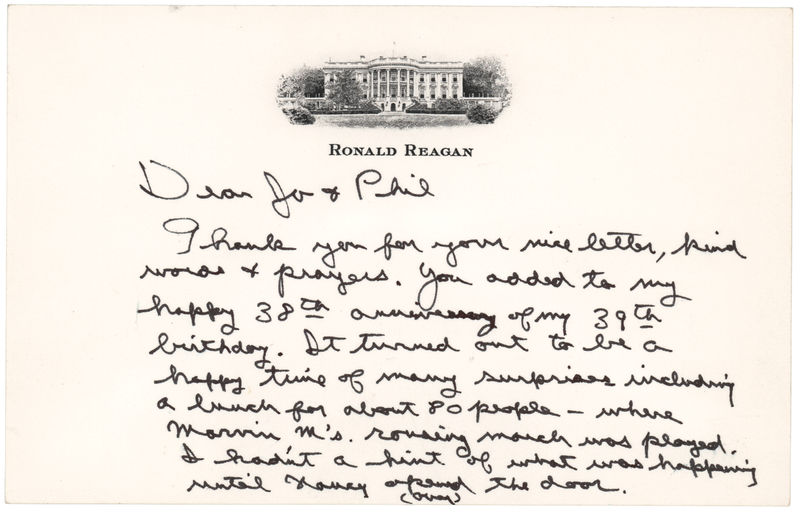 RONALD REAGAN
Dear Jo & Phil
Thank you for your nice letter, kind
words & prayers. You added to my
happy 38th anniversary of my 39th
birthday. It turned out to be a
happy time of many surprises including
a lunch for about 80 people – where
Marvin M's. rousing march was played.
I hadn't a hint of what was happening
until Nancy opened the door.
(over)